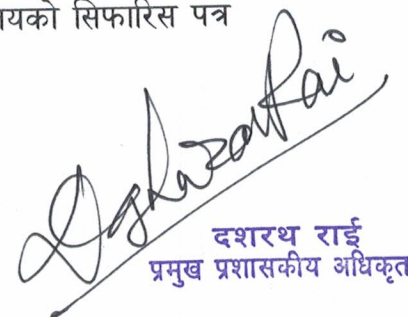 यको सिफारिस पत्र
दशरथ राई
प्रमुख प्रशासकीय अधिकृत